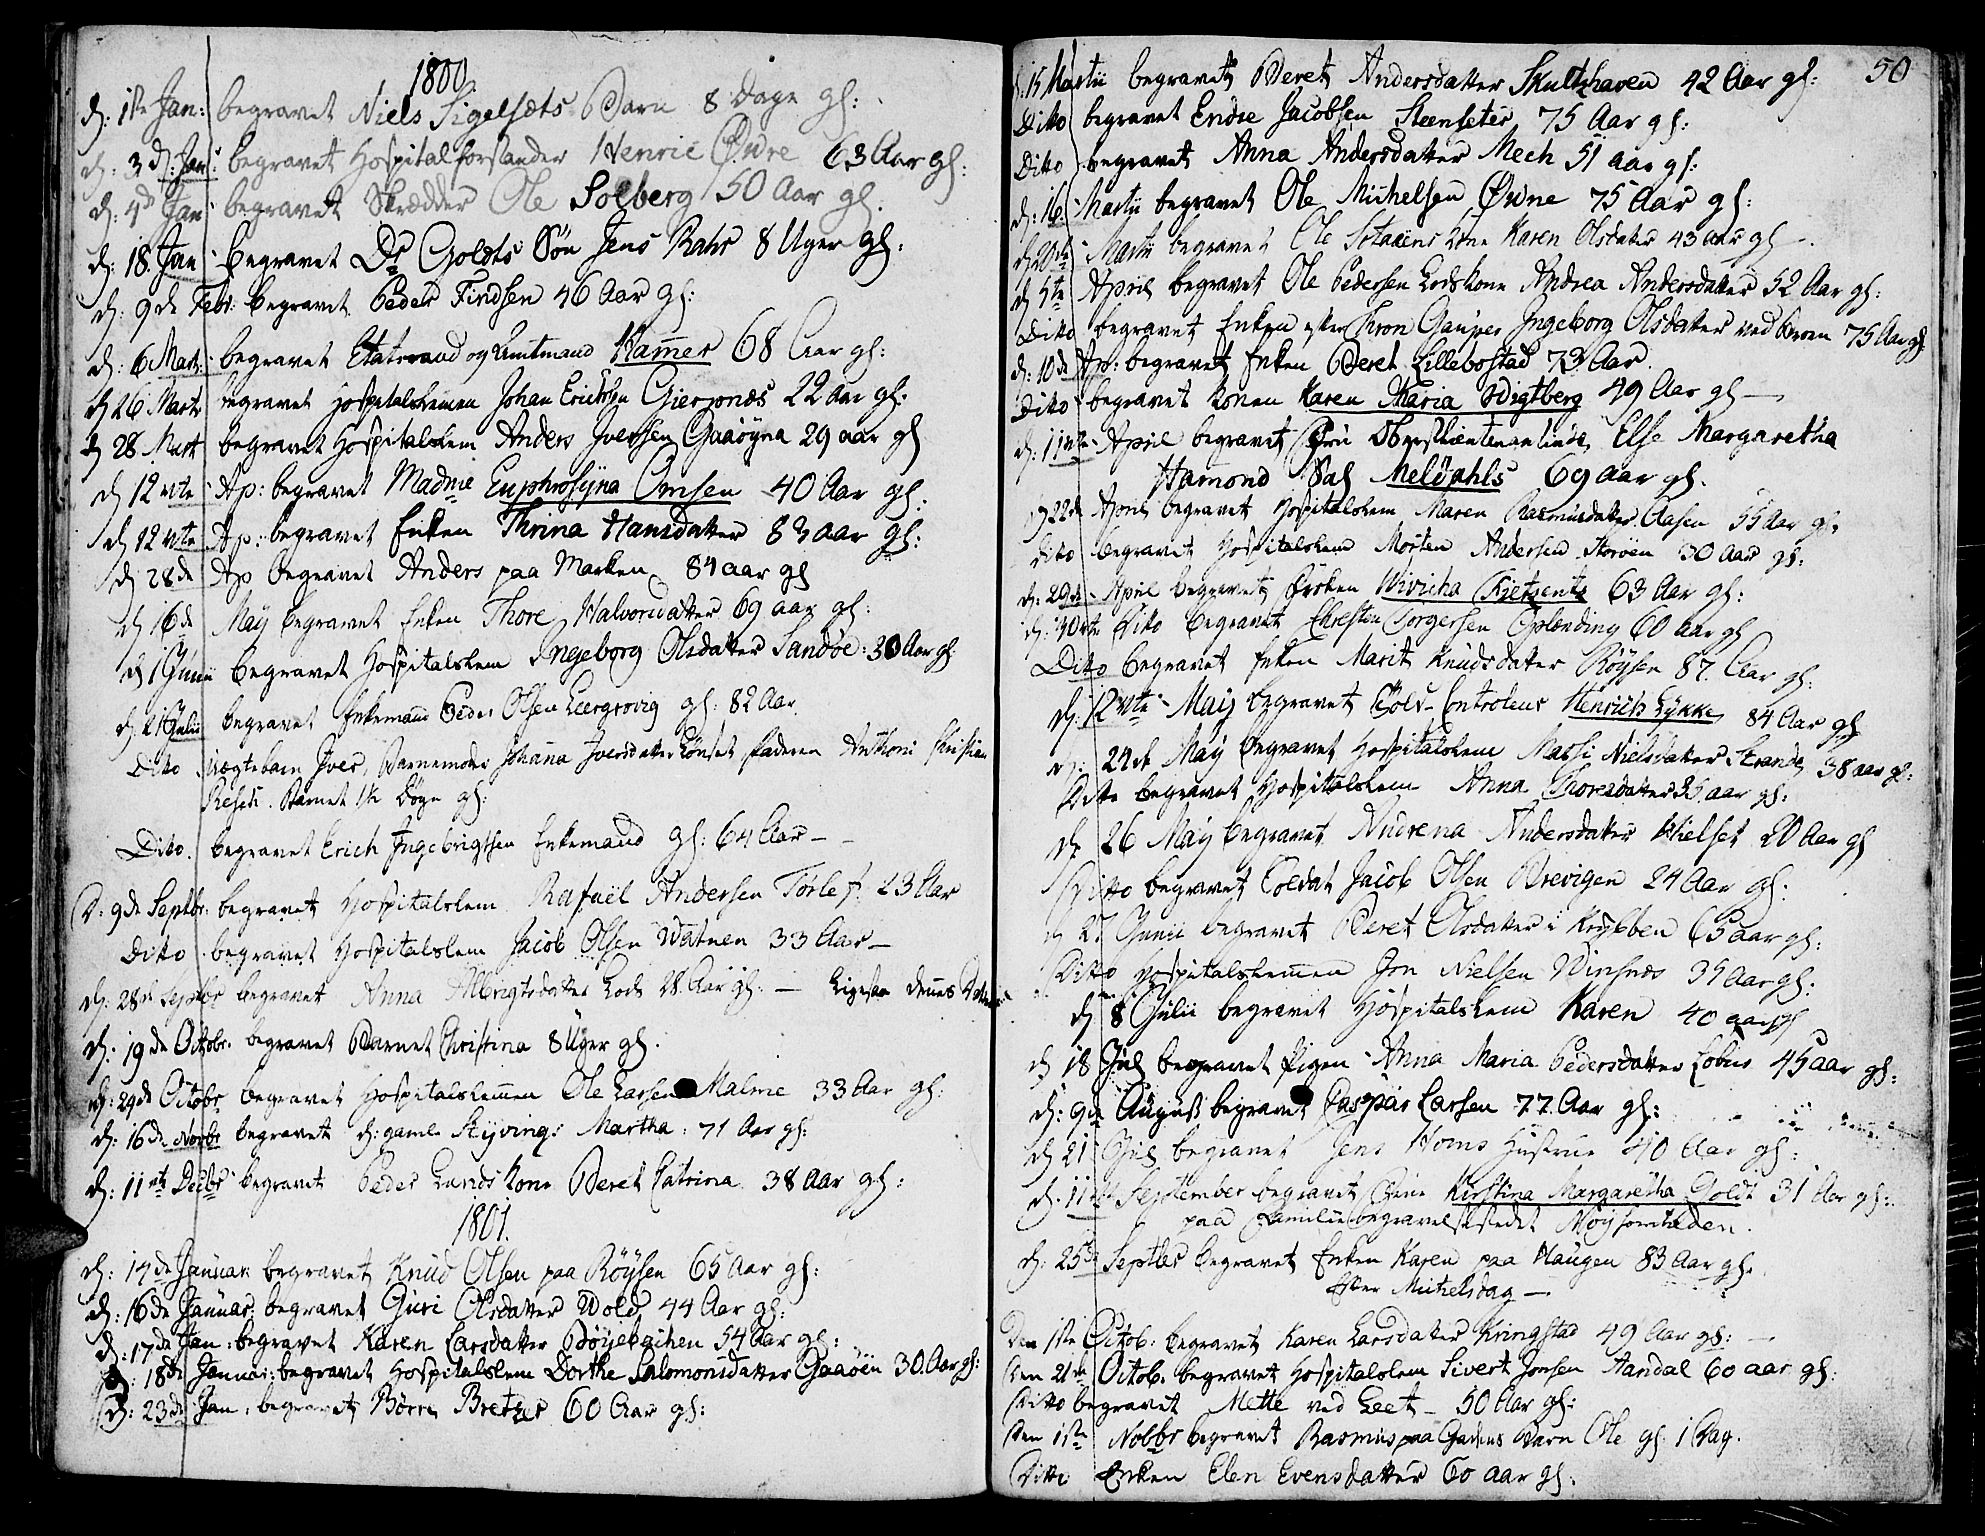 1800.
d: 1ste Jan: begravet Niels Sigelsets Barn 8 Dage gl:
d: 3d: Jan: begravet Hospitalforstander Henric Øvre 63 Aar gl:
d: 4d Jan begravet Skrædder Ole Solberg 50 Aar gl.
d: 18. Jan begravet Dr Goldts Søn Jens Rahr 8 Uger gl.
d: 9de Febr: begravet Peder Findsen 46 Aar gl:
d: 6 Mart: begravet Etatsraad og Amtmand Hamer 68 Aar gl:
d 26 Martz begravet Hospitalslemen Johan Erichsen 22 aar gl:
d 28 Mart begravet Hospitalslem Anders Iversen Gaaöyna 29 aar gl
d 12vte Ap: begravet Madme Euphrosyna 40 Aar gl:
d 12vte Ap: begravet Enken Thrina Hansdatter 83 aar gl:
d 28de Ap begravet Anders paa Marken 84 aar gl
d 16de May begravet Enken Thore Halvorsdatter 69 aar gl:
d 1 Junii begravet Hospitalslem Ingeborg Olsdatter Sandöe: 30 Aar gl
d. 21 Julii begravet Enkemand Peder Olsen Leergrovig gl: 82 Aar
Dito Uægtebarn Iver, Barnemoder Johana Iversdatter Lönset faderen Anthoni Christian
Barnet 1½ Dögn gl:
Dito. begravet Erich Ingebrigtsen Enkemand gl: 64 Aar –
D: 9de Septbr: begravet Hospitalslem Rafaël Andersen 23 Aar
Ditto begravet Hospitalslem Jacob Olsen Watnen 33 Aar –
d: 28de Septbr begravet Anna Albrigtsdatter Lods 28 Aar gl: – Ligesaa dennes
d: 19de Octobr. begravet Barnet Christina 8 Uger gl.
d: 24de Octobr begravet Hospitalslemen Ole Larsen Malme 33 Aar gl:
d: 16de Novbr begravet d: gamle Martha: 71 Aar gl:
d: 11vte Decbr begravet Peder Lunds Kone Beret Catrina 38 Aar gl:
1801.
d: 14de Januar: begravet Knud Olsen paa Röysen 65 Aar gl:
d: 16de Januar: begravet Guri Olsdatter Wold 44 Aar gl:
d: 17de Jan: begravet Karen Larsdatter 54 Aar gl:
d: 18de Januar: begravet Hospitalslem Dorthe Salomonsdatter Gaaöen 30 Aar gl:
d: 23de Jan: begravet Börre 60 Aar gl:
50
d. 15 Martii begravet Beret Andersdatter Skultshaven 42 Aar gl:
Ditto begravet Endre Jacobsen Steenseter 75 Aar gl:
Ditto begravet Anna Andersdatter Mech 51 aar gl:
d: 16. Martii begravet Ole Michelsen Øvne 75 Aar gl:
d 20de Martii begravet Ole Kone Karen Olsdatter 43 aar gl –.
d 5te April begravet Ole Pedersen Lods Kone Andrea Andersdatter 52 Aar gl:
Ditto begravet Enken efter Ingeborg Olsdatter ved 75 Aar gl
d: 10de Ap: begravet Enken Beret Lillebostad 73 Aar.
Ditto begravet Konen Karen Maria Wigtberg 49 Aar gl –
d: 11vte April begravet Frue Oberstlieutenantinde Else Margaretha
Hamond Sal Meldahls 69 aar gl.
d 22de April begravet Hospitalslem Maren Rasmusdatter Aasen 55 Aar gl:
Dito begravet Hospitalslem Morten Andersen Storöen 30 aar gl:
d: 29de April begravet Enken 63 Aar gl:
d: 30vte Dito begravet Christen Torgersen Oplænding 60 aar gl
Ditto begravet Enken Marit Knudsdatter Röysen 87. Aar gl:
d: 12vte May begravet Told-Controleur Henrich Lykke 84 Aar gl
d: 24de May begravet Hospitalslem Massi Nielsdatter Strande 38 aar gl:
Ditto begravet Hospitalslem Anna Thoresdatter 36 aar gl:
d 26 May begravet Andrena Andersdatter 20 Aar gl
Ditto begravet Soldat Jacob Olsen Brevigen 24 Aar gl:
d 27 Junii begravet Beret Olsdatter i Krybben 65 aar gl:
Ditto Hospitalslemen Jon Nielsen Winsnes 35 Aar gl:
d 8 Julii begravet Hospitalslem Karen 40 aar gl
d 18 Jul begravet Pigen Anna Maria Pedersdatter 45 aar gl:
d: 9de August begravet Caspar Larsen 77 Aar gl:
d 21 Jul begravet Jens Homs Hustrue 40 Aar gl:
d. 11vte September begravet Frue Kirstina Margaretha Goldt 31 Aar gl:
paa Familiebegravelsesstedet
d: 25de Septber begravet Enken Karen paa Haugen 83 Aar gl:
Efter Michelsdag –
Den 1ste Octob: begravet Karen Larsdatter Kringstad 49 Aar gl: –
Den 21de Octob. begravet Hospitalslem Sivert Jonsen Aandal 60 aar gl:
Ditto begravet Mette ved Leet – 50 Aar gl:
Den 1ste Novbr begravet Rasmus paa Barn Ole gl 1 Dag.
Ditto Enken Elen Evensdatter 60 aar gl: